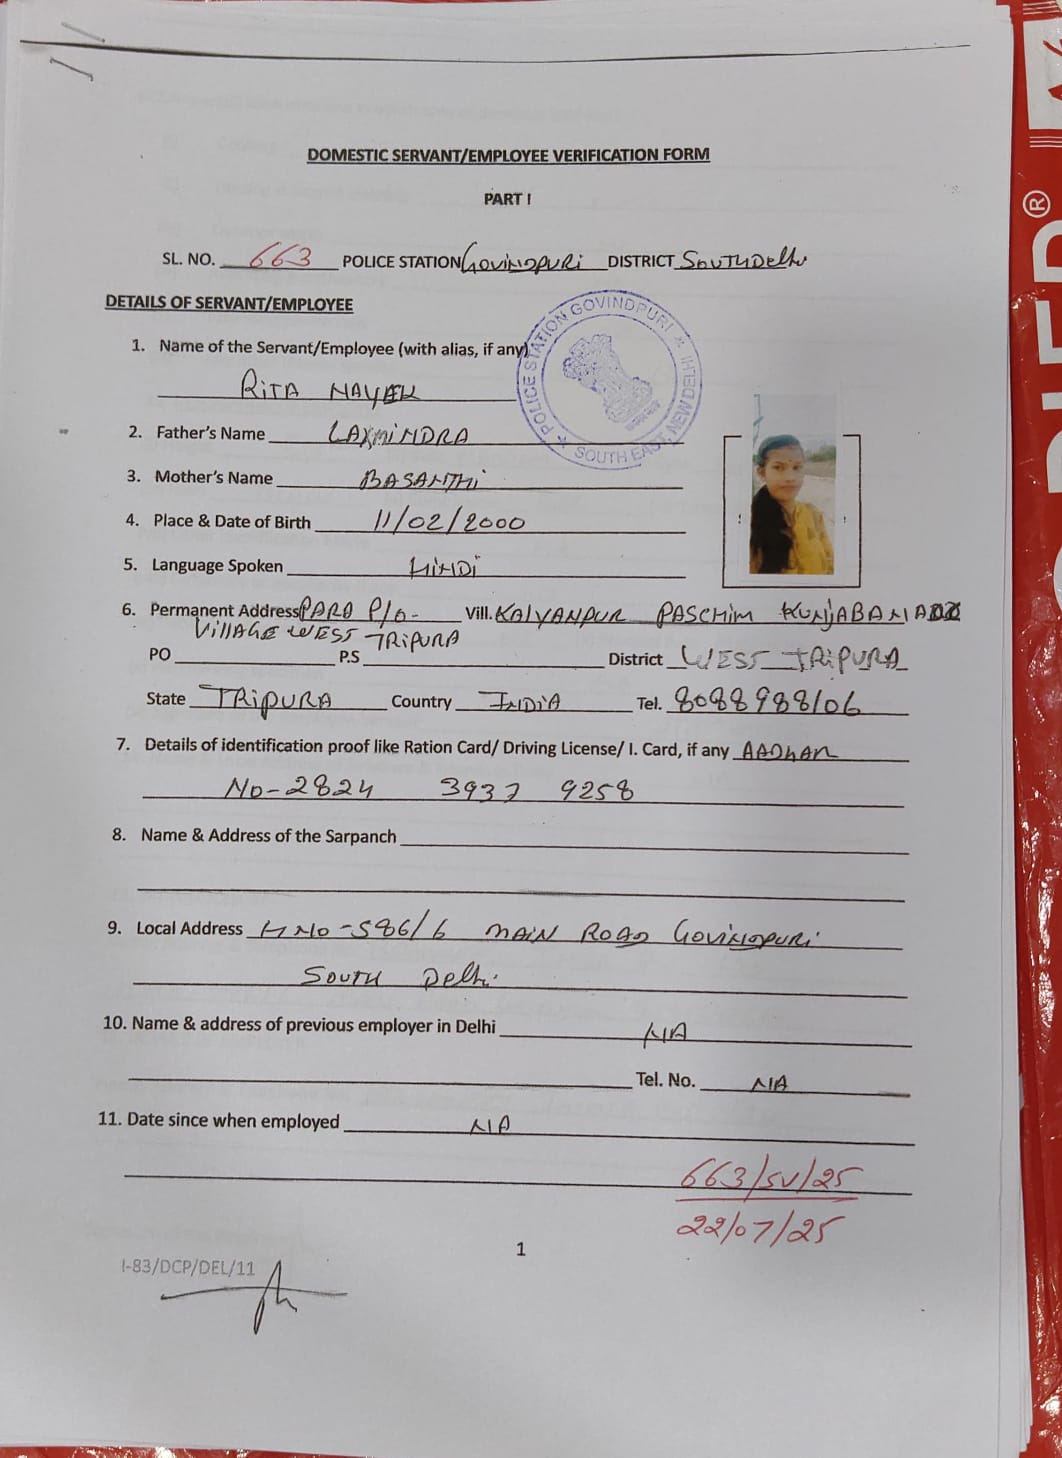 DOMESTIC SERVANT/EMPLOYEE VERIFICATION FORM
PART I
SL. NO. 663 POLICE STATION GOVINDPURI DISTRICT SOUTH Delhi
DETAILS OF SERVANT/EMPLOYEE
POLICE STATION GOVINDPURI
SOUTH EAST, NEW DELHI
1. Name of the Servant/Employee (with alias, if any)
RITA NAYEK
2. Father's Name LAXMINDRA
3. Mother's Name BASANTHI
4. Place & Date of Birth 11/02/2000
5. Language Spoken HINDI
6. Permanent Address PARA P/O- Vill. KALYANPUR PASCHIM KUNJABAN
VILLAGE WEST TRIPURA
PO P.S District WEST TRIPURA
State TRIPURA Country INDIA Tel. 8088988106
7. Details of identification proof like Ration Card/ Driving License/ I. Card, if any AADHAR
No-2824 3937 9258
8. Name & Address of the Sarpanch
9. Local Address H NO-586/6 MAIN ROAD GOVINDPURI
SOUTH Delhi.
10. Name & address of previous employer in Delhi N/A
Tel. No. N/A
11. Date since when employed N/A
663/SV/25
22/07/25
1
I-83/DCP/DEL/11